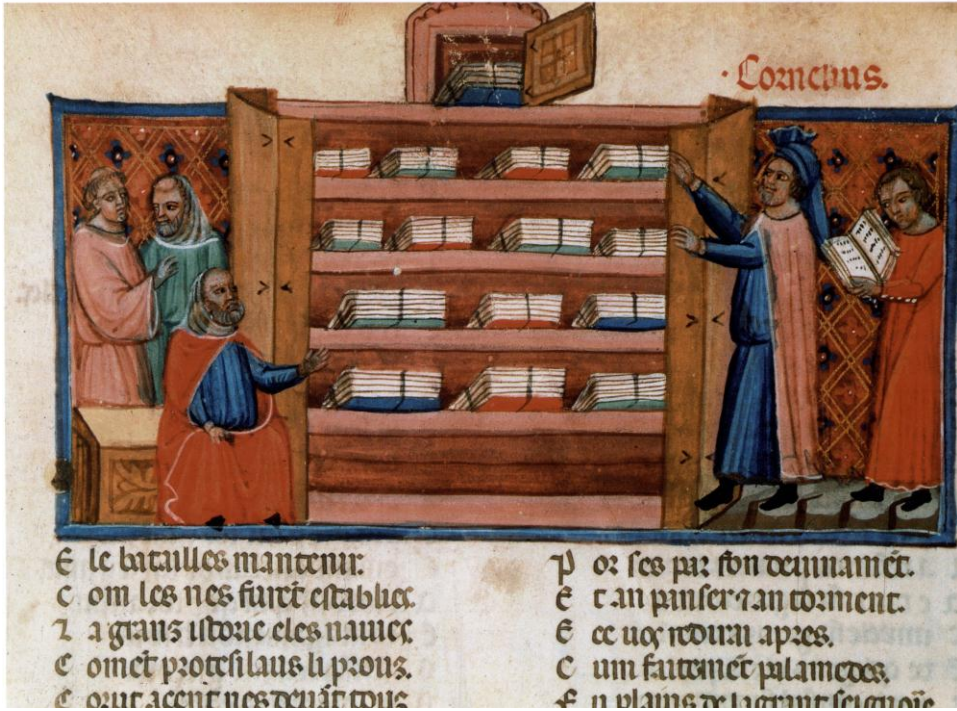 ·Cornelius.
E le batailles mantenir.
C om les nes furēt establies.
⁊ a granz istorie eles nauies.
C omēt protesilaus li prouz.
C orut acent nes deuāt touz
P or ses par son deuinamēt.
E t an panser ⁊ an torment.
E ce uos redirai apres.
C um faitemēt palamedes.
E n plains de la grant seignorie